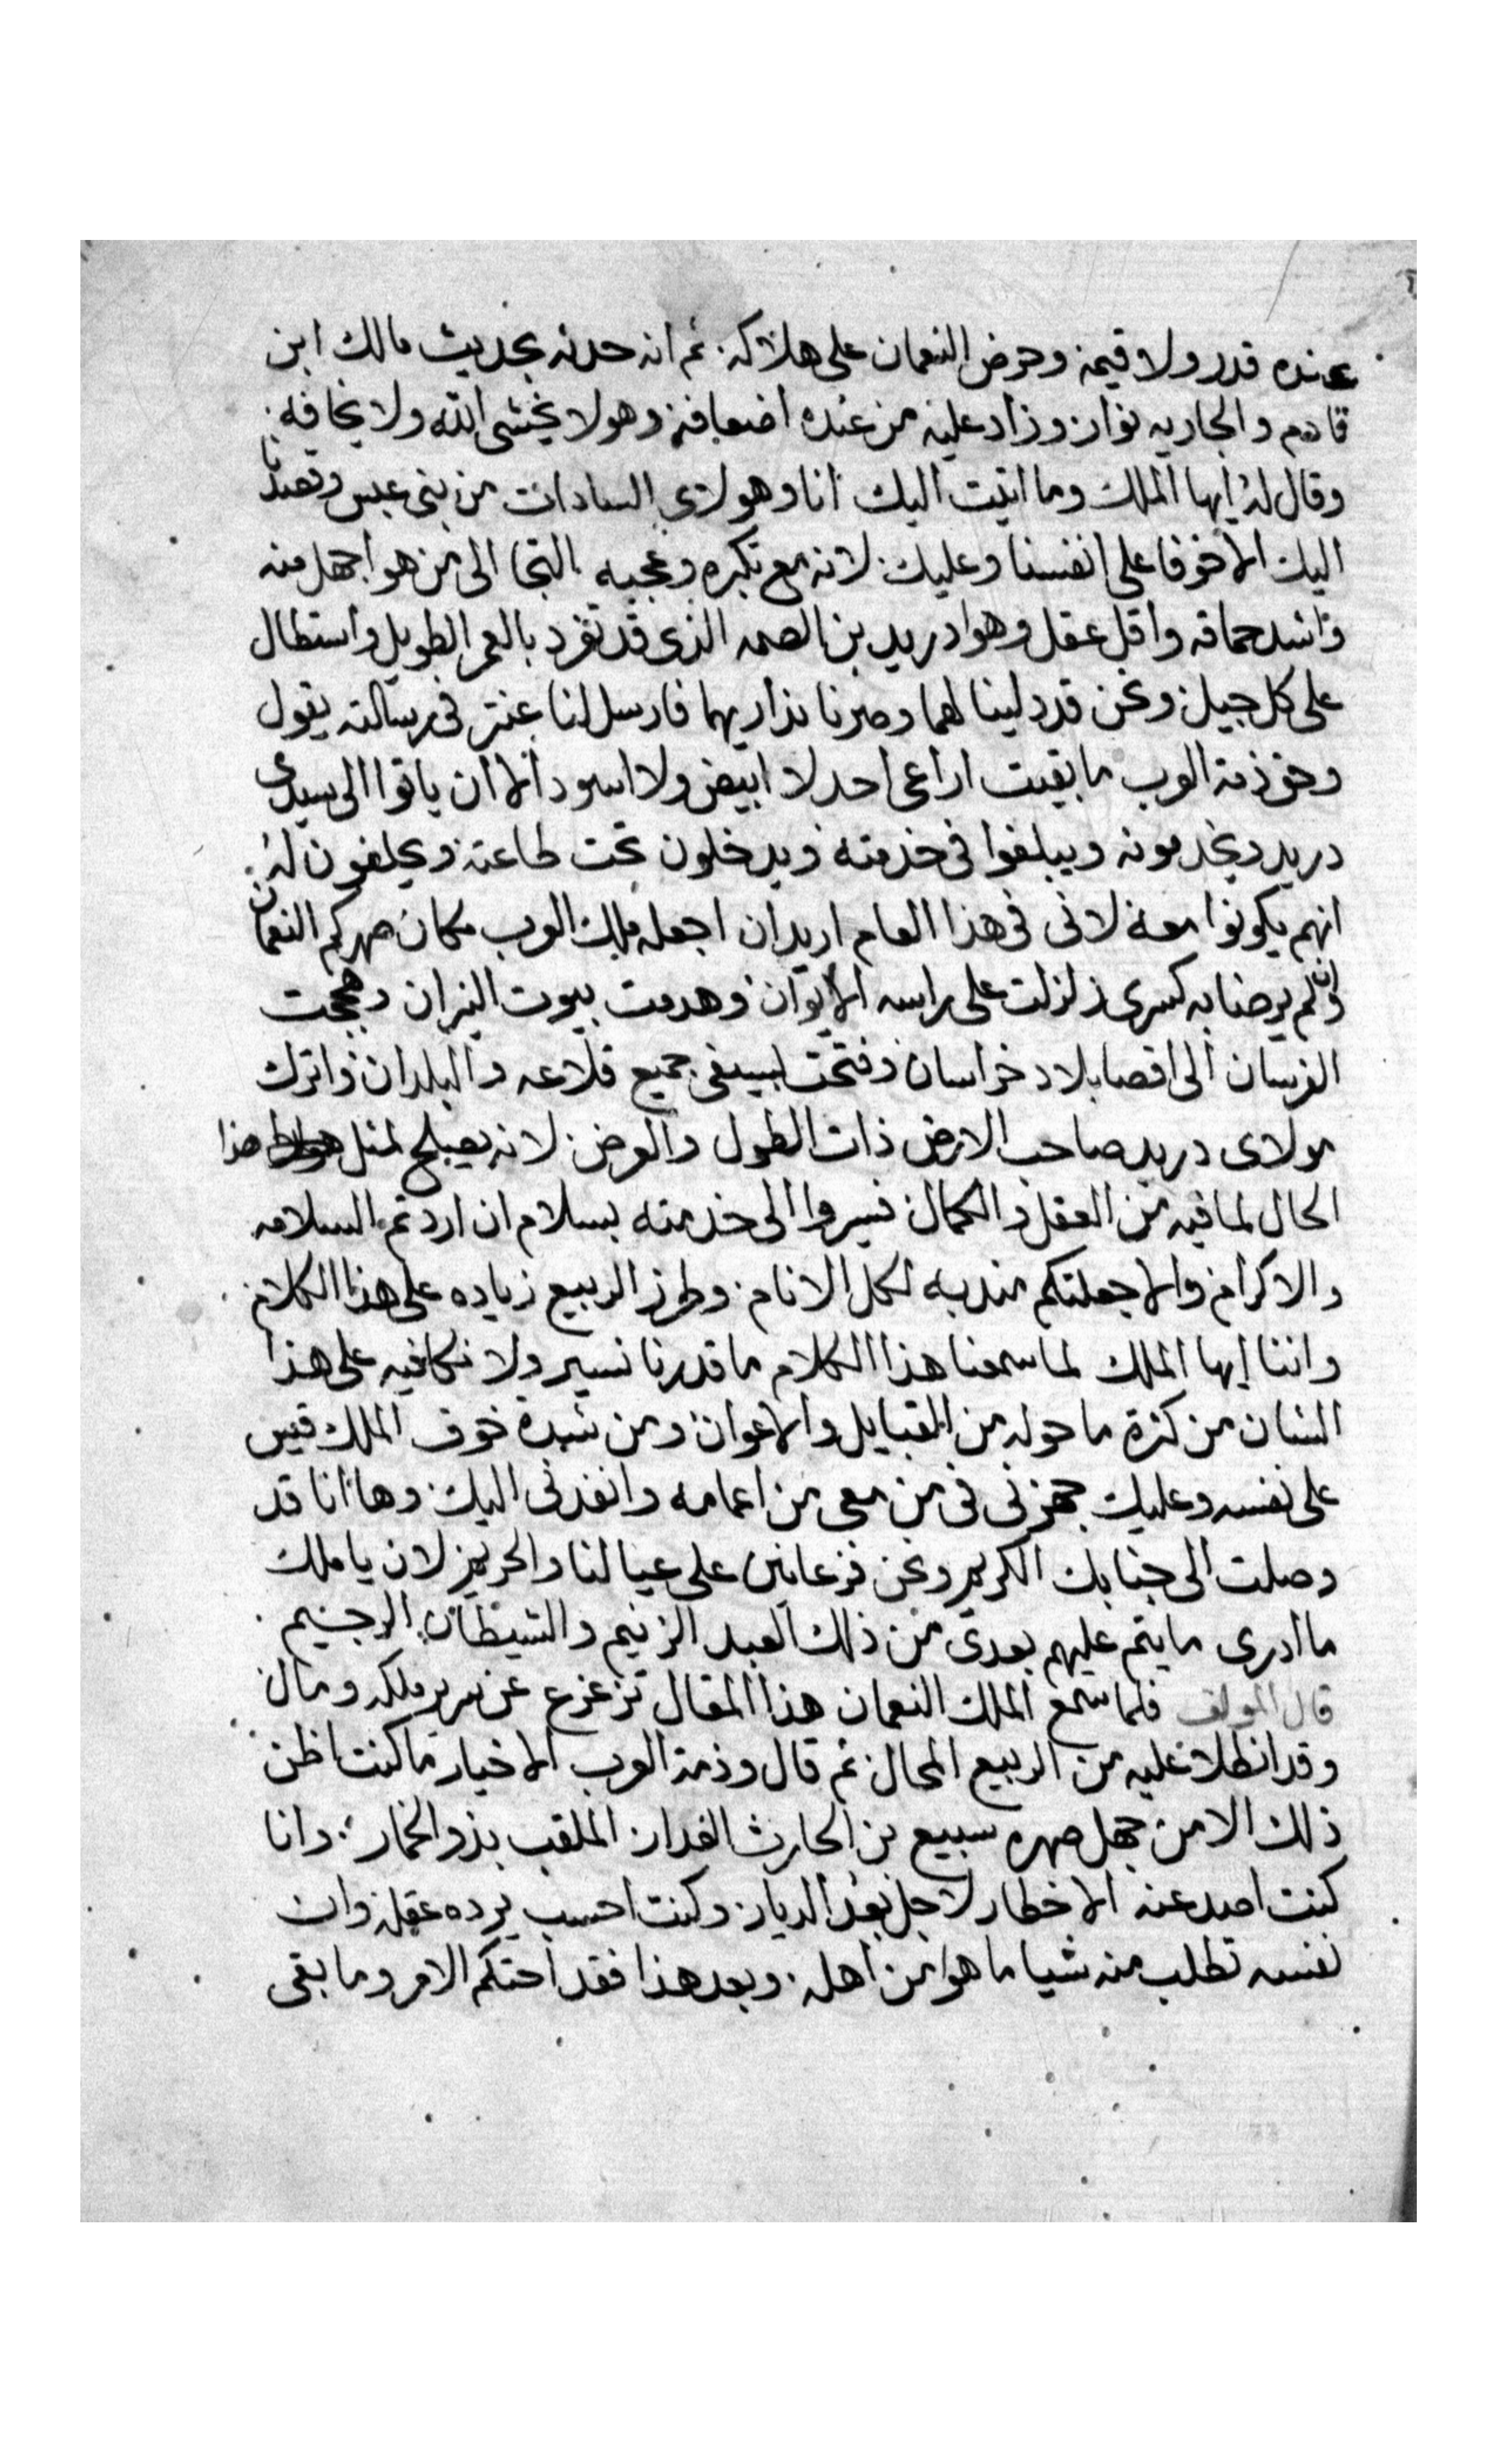 عنده قدر ولا قيمة وحرض النعمان على هلاكه. ثم انه حدثه بحديث مالك ابن
قادم والجاريه نوار وزاد عليه من عنده اضعافه وهو لا يخشى الله ولا يخافه.
وقال له ايها الملك وما اتيت اليك انا وهولاى السادات من بنى عبس وقصدنا
اليك الا خوفا على انفسنا وعليك. لانه مع تكبره وعجبه التجا الى من هو اجهل منه
واشد حماقه واقل عقل وهوا دريد بن الصمه الذى قد تفرد بالعمر الطويل واستطال
على كل جيل ونحن قد دلينا لهما وصرنا نداريهما فارسل لنا عنتر فى رسالته يقول
وحق ذمة العرب ما بقيت اراعى احد لا ابيض ولا اسود الا ان ياتوا الى سيدى
دريد ويخدمونه ويبلغوا فى خدمته ويدخلون تحت طاعته ويحلفون له.
انهم يكونوا معه لانى فى هذا العام اريد ان اجعله ملك العرب مكان صهركم النعمان
وان لم يرضا به كسرى زلزلت على راسه الايوان وهدمت بيوت النيران وهججت
الفرسان الى اقصا بلاد خراسان وفتحت بسيفى جميع قلاعه والبلدان واترك
مولاى دريد صاحب الارض ذات الطول والعرض. لانه يصلح لمثل هذا
الحال لما فيه من العقل والكمال فسيروا الى خدمته بسلام ان اردتم السلامه
والاكرام والا جعلتكم مندبه لكل الانام. وطرز الربيع زياده على هذا الكلام.
واننا ايها الملك لما سمعنا هذا الكلام ما قدرنا نسير ولا نكافيه على هذا
الشان من كثرة ما حوله من القبايل والاعوان ومن شدة خوف الملك قيس
على نفسه وعليك جهزنى فى من معى من اعمامه وانفذنى اليك. وها انا قد
وصلت الى جنابك الكريم ونحن فزعانين على عيالنا والحريم لان يا ملك
ما ادرى ما يتم عليهم بعدى من ذلك العبد الزنيم والشيطان الرجيم.
قال المولف فلما سمع الملك النعمان هذا المقال تزعزع عن سرير ملكه ومال
وقد انطلا عليه من الربيع المحال. ثم قال وذمة العرب الاخيار ما كنت اظن
ذلك الا من جهل صهره سبيع بن الحارث الغدار. الملقب بذو الخمار. وانا
كنت اصد عنه الاخطار لاجل بعد الديار. وكنت احسب يرده عقله وان
نفسه تطلب منه شيا ما هوا من اهله. وبعد هذا فقد احتكم الامر وما بقى